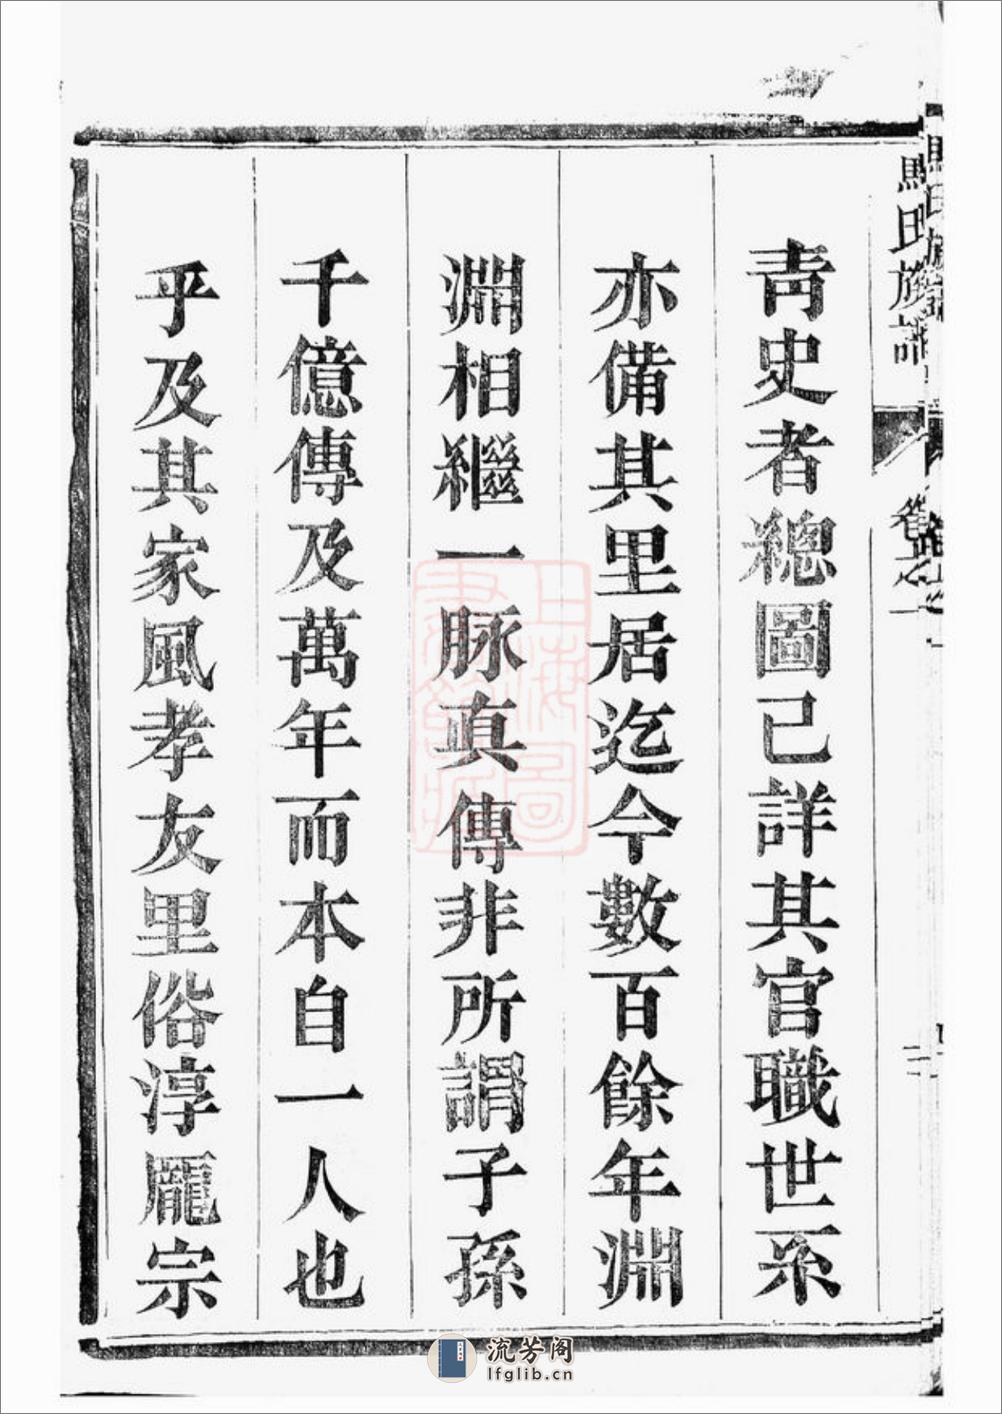 馬氏族譜
卷之一
二
青史者總圖已詳其官職世系
亦備其里居迄今數百餘年淵
淵相繼一脉真傳非所謂子孫
千億傳及萬年而本自一人也
乎及其家風孝友里俗淳龐宗
上海圖書館藏
流芳阁
lfglib.cn